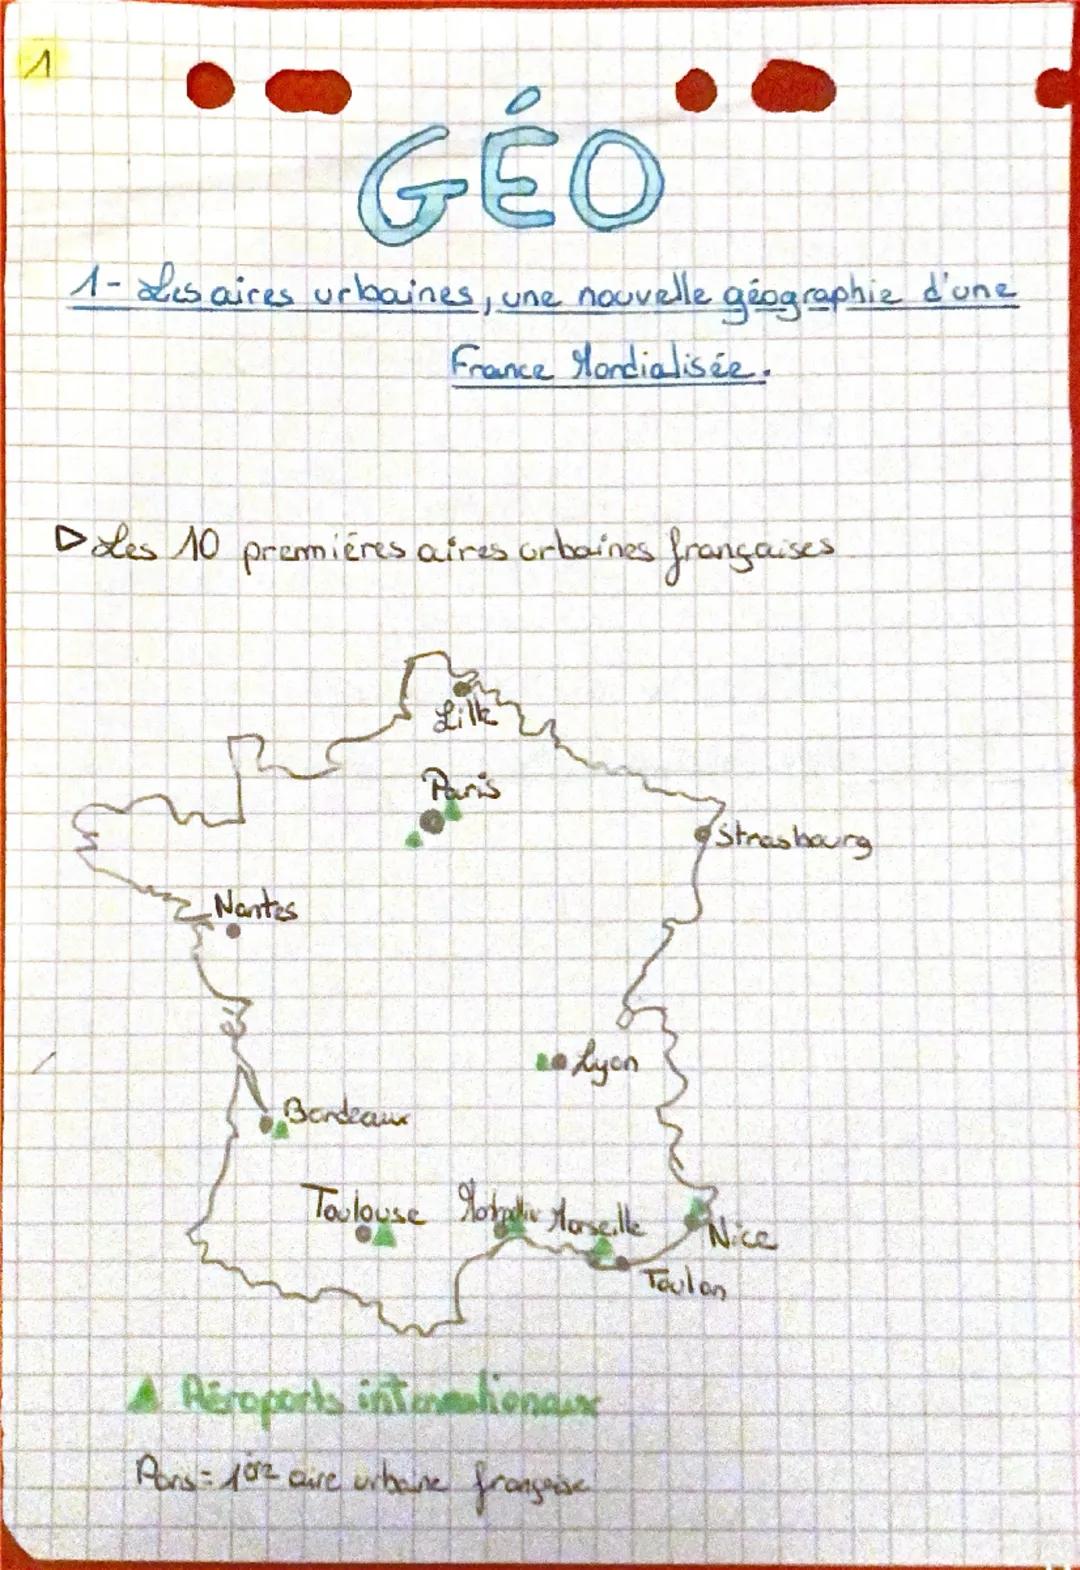 1
GÉO
1- Les aires urbaines, une nouvelle géographie d'une
France Mondialisée.
▷ Les 10 premmières aires urbaines françaises
Lille
Paris
Strasbourg
Nantes
Lyon
Bordeaux
Toulouse Marseille
Nice
Toulon
▲ Aéroports internationaux
Paris = 1ère aire urbaine française